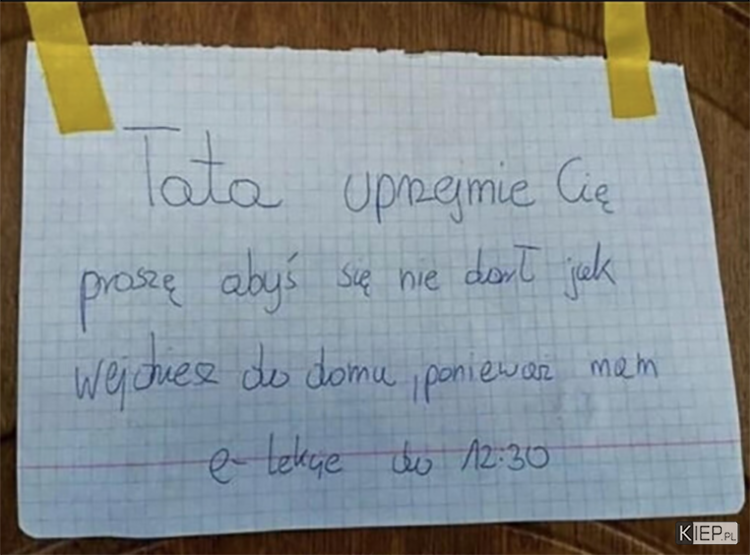 Tata uprzejmie Cię
proszę abyś się nie darł jak
wejdziesz do domu, ponieważ mam
e-lekcje do 12:30
KIEP.PL